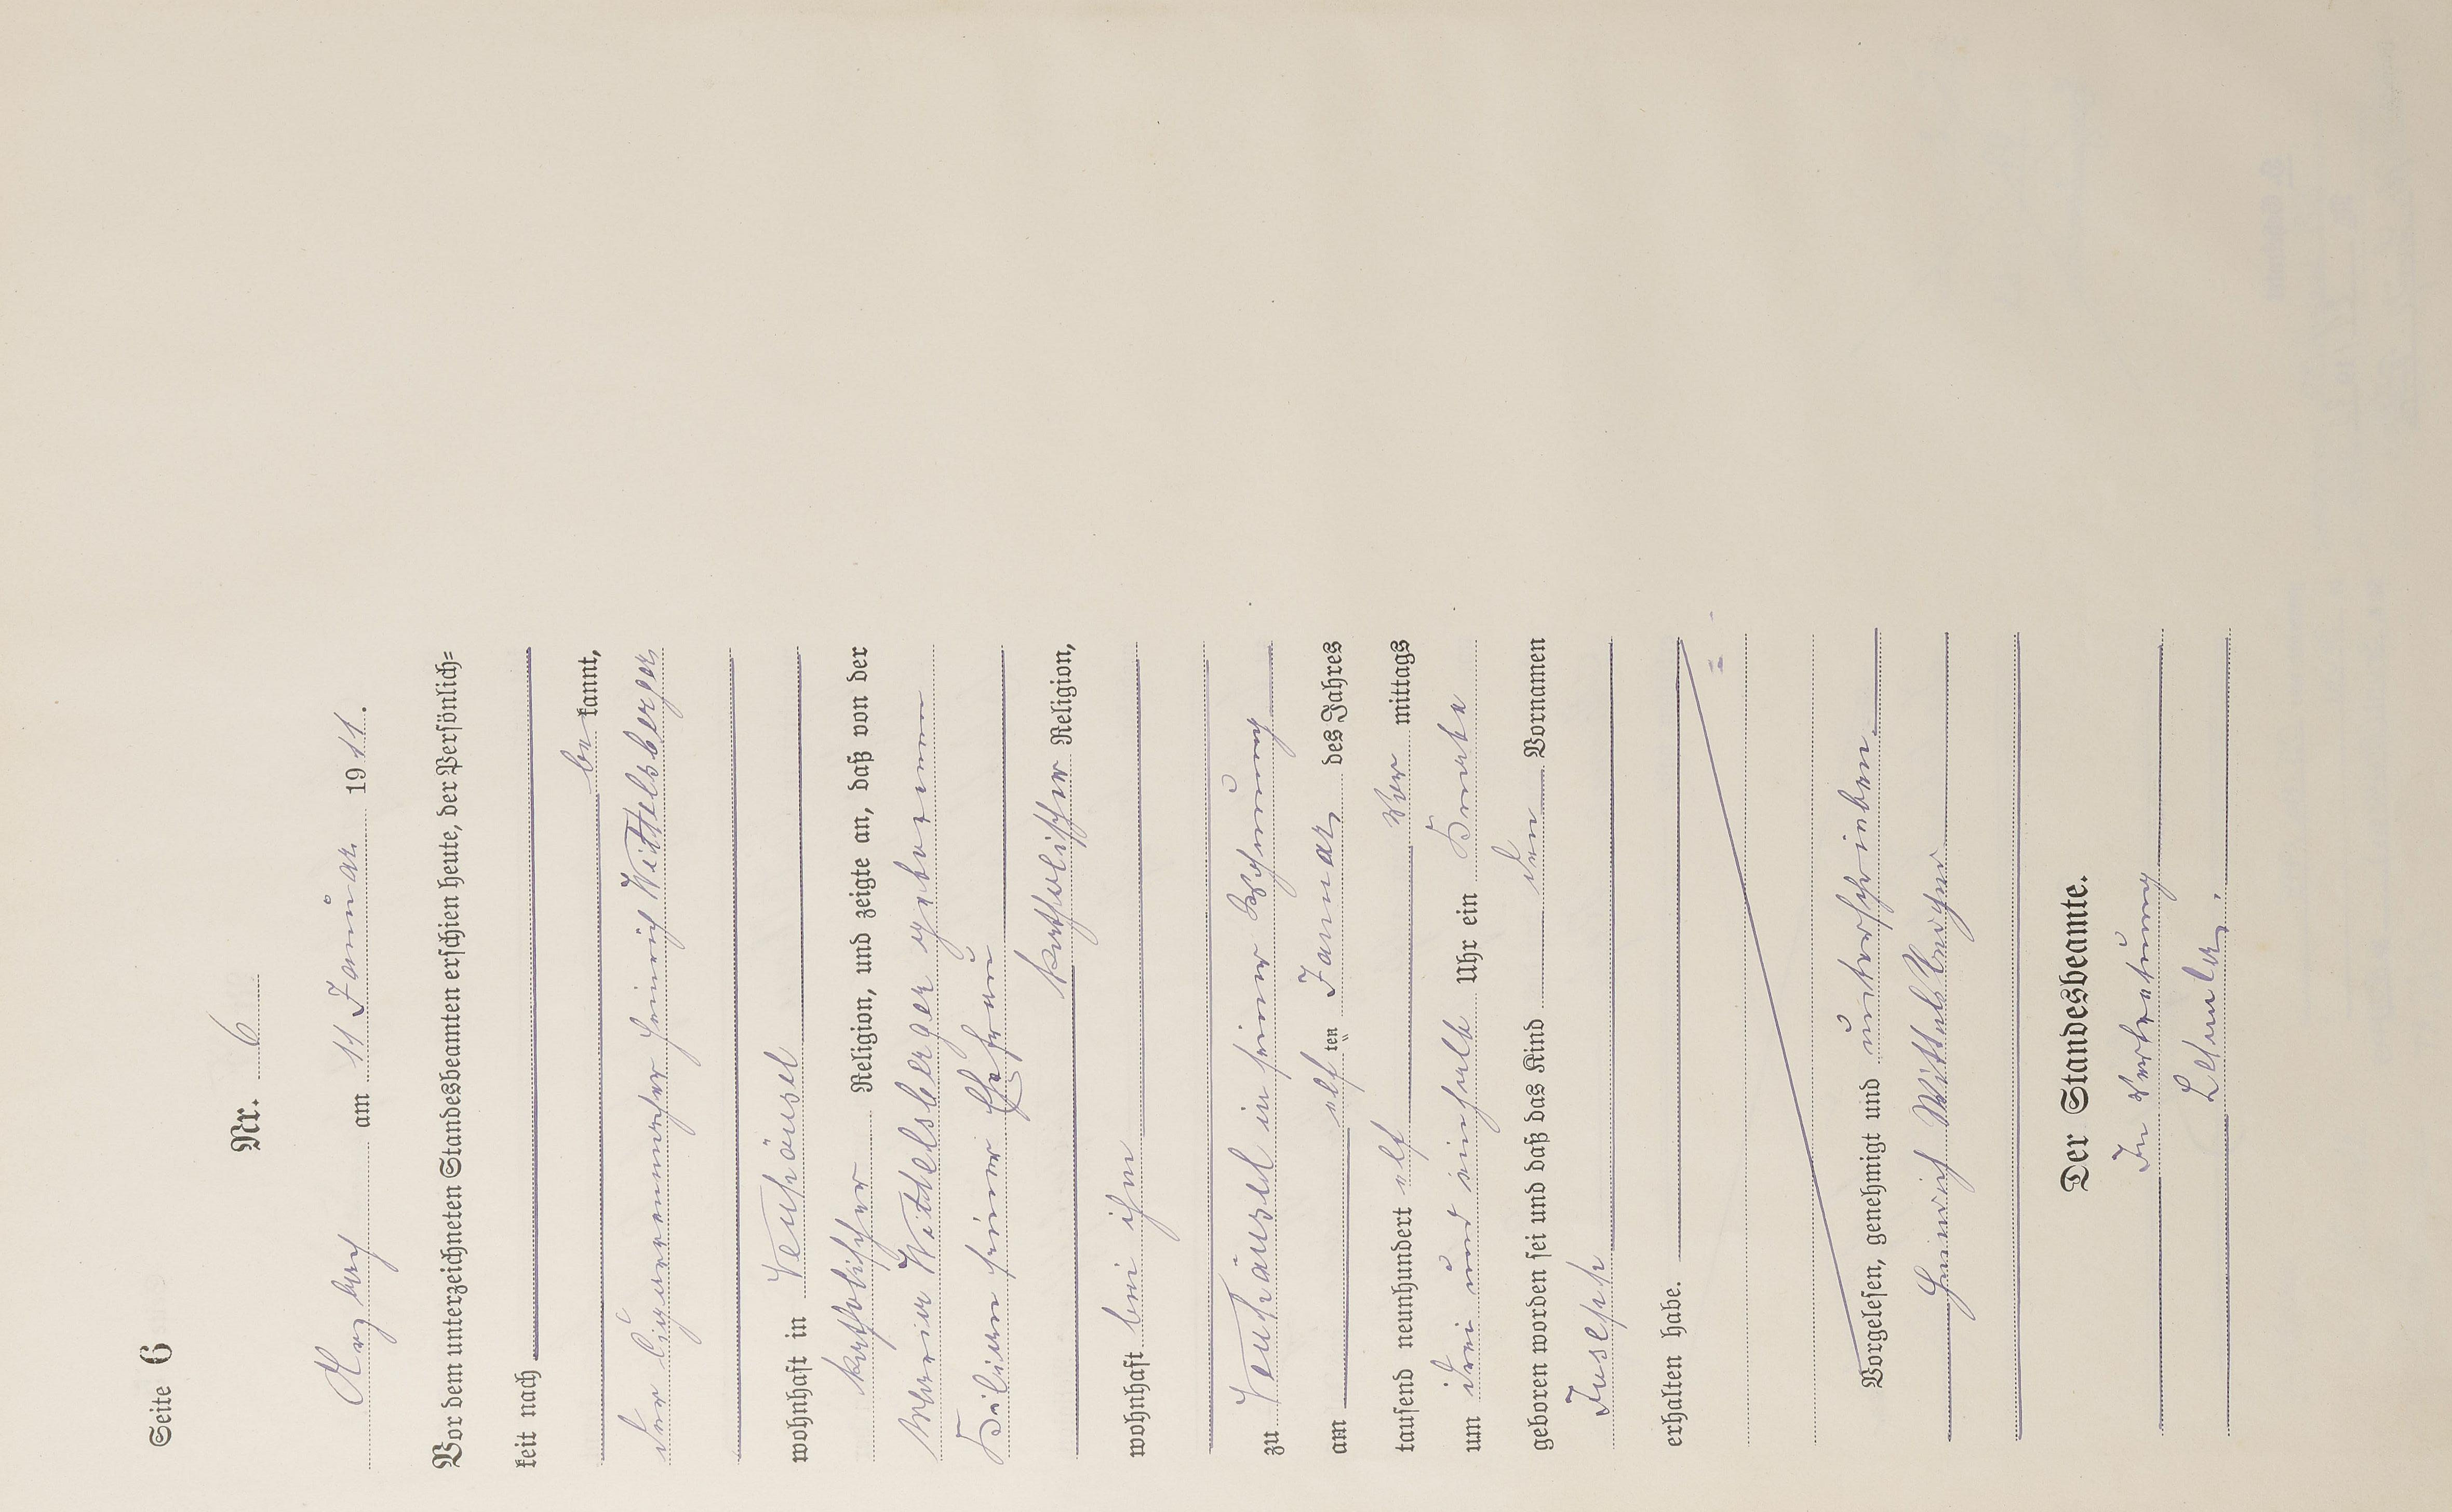 Seite 6
Nr. 6
am 11 Januar 1911.
Vor dem unterzeichneten Standesbeamten erschien heute, der Persönlich-
keit nach
be kannt,
der Cigarrenmacher Heinrich Wittelsberger
wohnhaft in
katholischer Religion, und zeigte an, daß von der
Maria Wittelsberger geborenen
seiner Ehefrau
katholischer Religion,
wohnhaft bei ihm
zu in seiner Wohnung
am elf ten Januar des Jahres
tausend neunhundert elf vor mittags
um drei und einhalb Uhr ein Knabe
geboren worden sei und daß das Kind den Vornamen
Joseph
erhalten habe.
Vorgelesen, genehmigt und unterschrieben.
Heinrich Wittelsberger
Der Standesbeamte.
In Vertretung